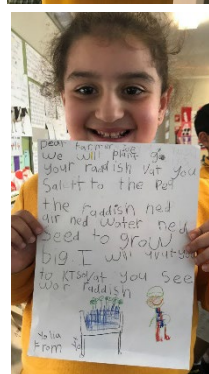 Dear Farmer
We will plant
your raddish Vat you
to the Pep
the raddish ned
air ned water ned
Seed to grow
big. I will
you See
war raddish
From